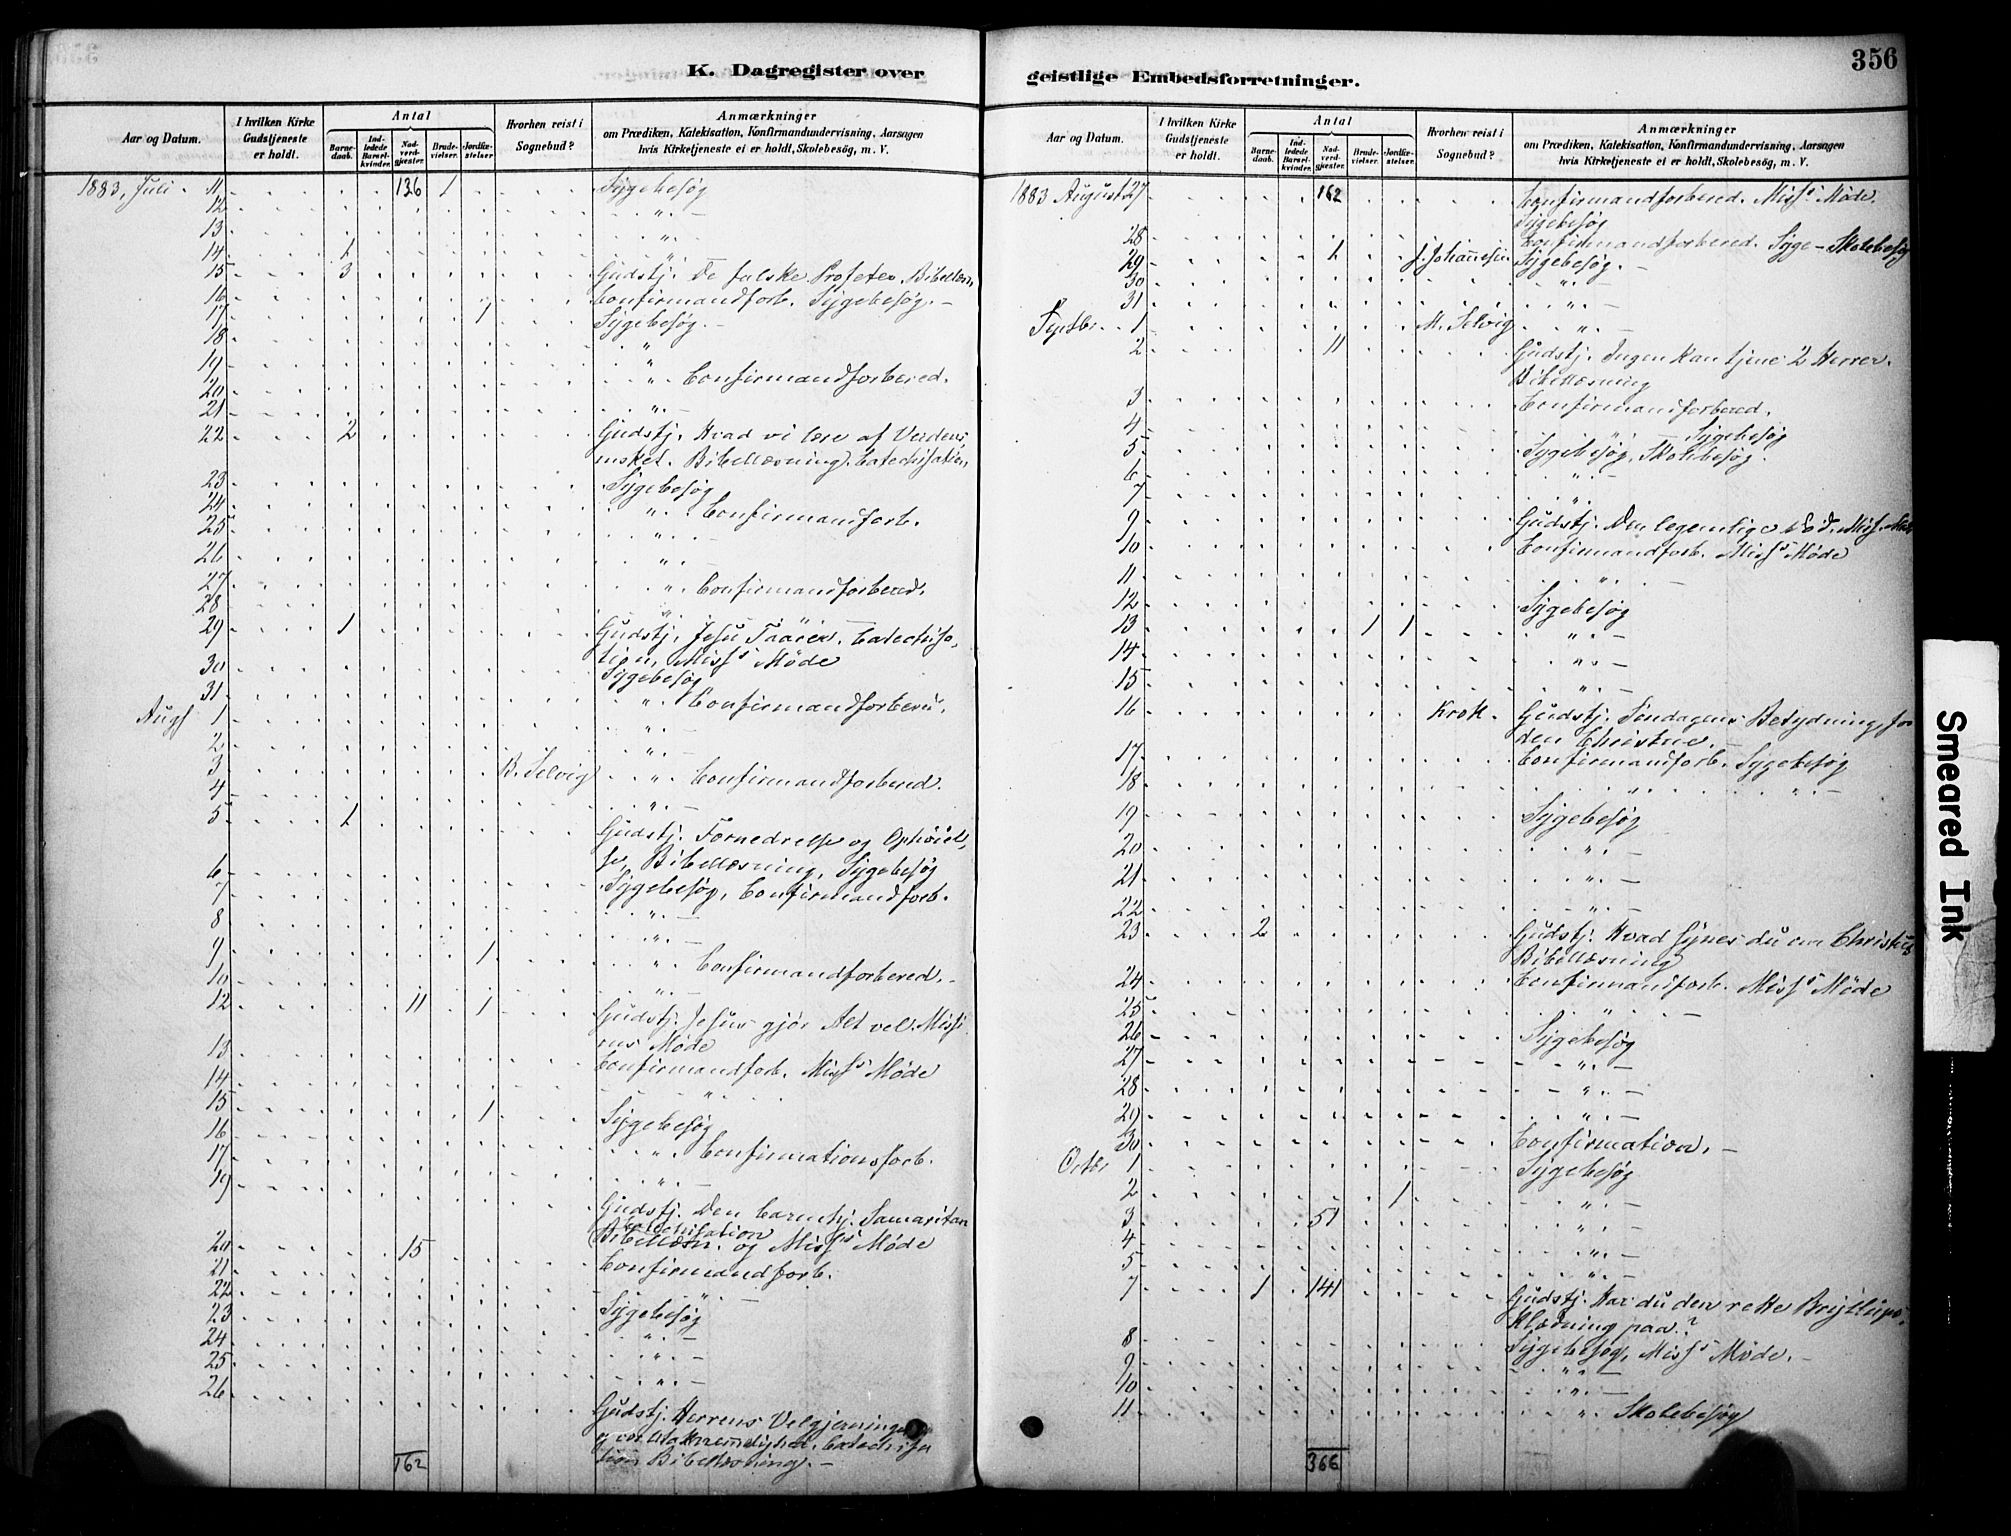 356
K. Dagregister over
Aar og Datum.
I hvilken Kirke Gudstjeneste er holdt.
Antal
Barnedaab.
Indledede Barselkvinder.
Nadverdgjester.
Brudevielser.
Jordfæstelser.
Hvorhen reist i Sognebud?
Anmærkninger
om Prædiken, Katekisation, Konfirmandundervisning, Aarsagen
hvis Kirketjeneste ei er holdt, Skolebesøg, m. V.
1883, Juli 11 136 1 Sygebesøg
12 " —
13 " —
14 1 "
15 3 Gudstj. De falske Profeter. Bibellæsn.
16 Confirmandforb. Sygebesøg. —
17 1 Sygebesøg. —
18 "
19 " Confirmandforbered.
20
21 " —
22 2 Gudstj. Hvad vi lære af Verdens
Bibellæsning. Catechisation,
23 Sygebesøg
24 " Confirmandforb.
25 " —
26 "
27 " Confirmandforbered.
28 "
29 1 Gudstj. Jesu Taarer. Catechisa-
tion, Miss's Møde
30 Sygebesøg
31 " Confirmandforbered.
Augs 1 " —
2 " —
3 B. Selvig " Confirmandforbered.
4 " —
5 1 Gudstj. Fornedrelse og Ophøiel-
se, Bibellæsning, Sygebesøg
6 Sygebesøg, Confirmandforb.
7 " —
8 " —
9 1 " Confirmandforbered. —
10 "
12 11 1 Gudstj. Jesus gjør Alt vel. Missi
Møde
13 Confirmandforb. Miss's Møde
14 "
15 1 Sygebesøg
16 " Confirmationsforb.
17 " —
19 Gudstj. Den barmhj. Samaritan
Catechisation
Bibellæsn. og Miss's Møde
20 15 Confirmandforb.
21 " —
22 Sygebesøg
23 " —
24 " —
25 " —
26 Gudstj. Herrens Velgjerninger
og vor Utaknemmelighed. Catechisa
tion Bibellæsning. —
162
geistlige Embedsforretninger.
Aar og Datum.
I hvilken Kirke Gudstjeneste er holdt.
Antal
Barnedaab.
Indledede Barselkvinder.
Nadverdgjester.
Brudevielser.
Jordfæstelser.
Hvorhen reist i Sognebud?
Anmærkninger
om Prædiken, Katekisation, Konfirmandundervisning, Aarsagen
hvis Kirketjeneste ei er holdt, Skolebesøg, m. V.
1883 August 27 162 Confirmandforbered. Miss's Møde.
Sygebesøg
28 Confirmandforbered. Syge – Skolebesøg
29 1 J. Johannesen Sygebesøg. —
30 " —
31 " —
Septbr. 1 M. Selvig " —
2 11 Gudstj. Ingen kan tjene 2 Herrer.
Bibellæsning
3 Confirmandforbered.
4 " Sygebesøg
5 Sygebesøg, Skolebesøg.
6 " —
7 "
9 Gudstj. Den legemlige Død. Miss. Møde
10 Confirmandforb. Miss's Møde
11 " —
12 Sygebesøg
13 1 1 " —
14 " —
15 " —
16 Krok. Gudstj. Søndagens Betydning for
den Christne. —
17 Confirmandforb. Sygebesøg
18 " " —
19 Sygebesøg
20 " —
21 " —
22 " —
23 2 Gudstj. Hvad synes du om Christus
Bibellæsning
24 Confirmandforb. Miss's Møde
25 " —
26 Sygebesøg
27 " —
28 " —
29 " —
30 Confirmation. —
Octbr 1 Sygebesøg
2 1 " —
3 51 " —
4 " —
5 " —
7 1 141 Gudstj. Har du den rette Bryllups-
Klædning paa?
8 Sygebesøg, Miss's Møde. —
9 " —
10 " —
11 " Skolebesøg
366
Smeared Ink